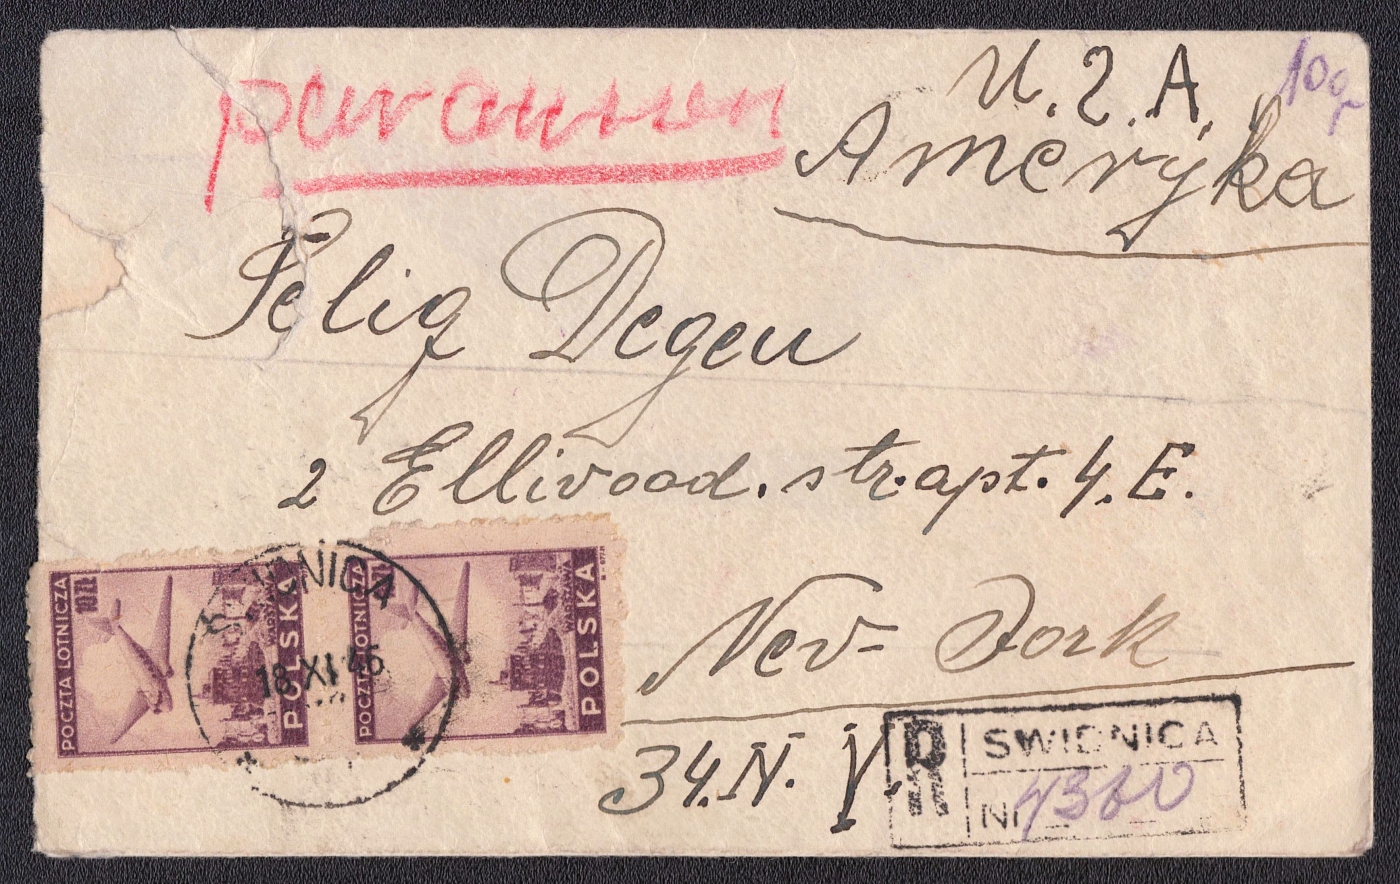 U.S.A. 100,-
par avion
Ameryka
Felig Degen
2 Ellivood. str. apt. 4. E.
Nev-York
34. N. Y.
POCZTA LOTNICZA
10 ZŁ
WARSZAWA
POLSKA
POCZTA LOTNICZA
WARSZAWA
POLSKA
ŚWIDNICA
18 XI 46
R SWIDNICA
Nr 4360